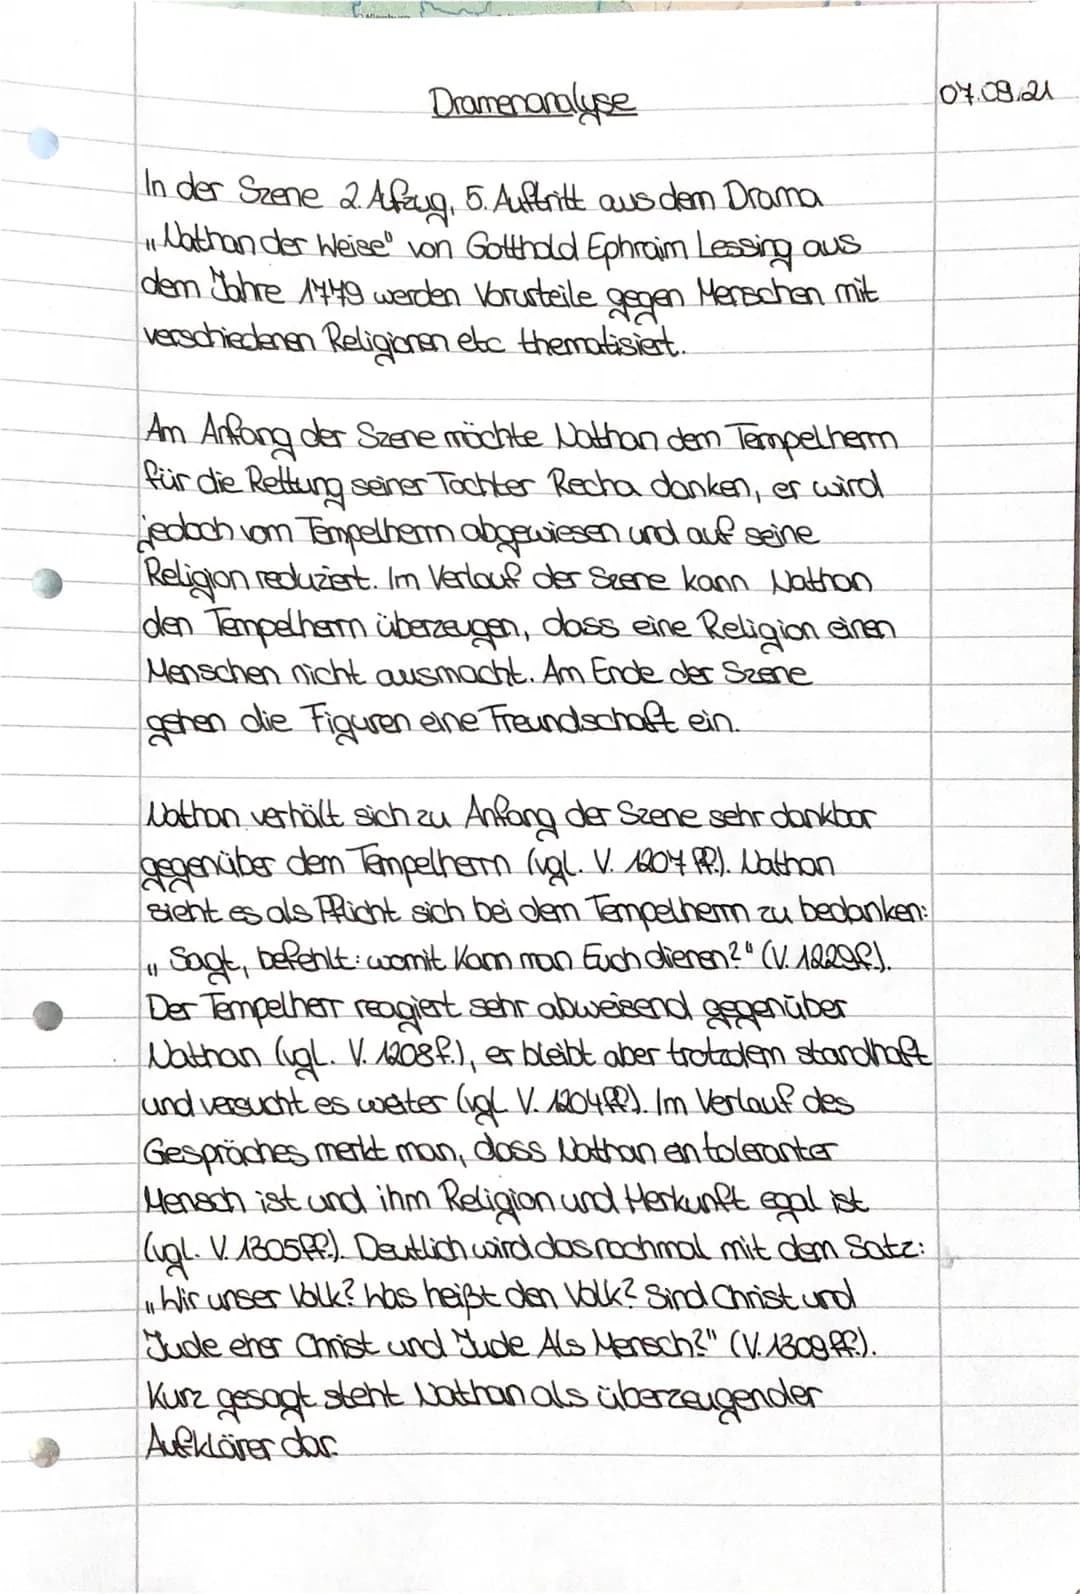 Dramenanalyse
07.09.21
In der Szene 2. Afzug, 5. Auftritt aus dem Drama
„Nathan der Weise" von Gotthold Ephraim Lessing aus
dem Jahre 1779 werden Vorurteile gegen Menschen mit
verschiedenen Religionen etc thematisiert.
Am Anfang der Szene möchte Nathan dem Tempelherrn
für die Rettung seiner Tochter Recha danken, er wird
jedoch vom Tempelherrn abgewiesen und auf seine
Religion reduziert. Im Verlauf der Szene kann Nathan
den Tempelherrn überzeugen, dass eine Religion einen
Menschen nicht ausmacht. Am Ende der Szene
gehen die Figuren eine Freundschaft ein.
Nathan verhält sich zu Anfang der Szene sehr dankbar
gegenüber dem Tempelherrn (vgl. V. 1207 ff.). Nathan
sieht es als Pflicht sich bei dem Tempelherrn zu bedanken:
„Sagt, befehlt: womit kann man Euch dienen?" (V. 1229f.).
Der Tempelherr reagiert sehr abweisend gegenüber
Nathan (vgl. V. 1208f.), er bleibt aber trotzdem standhaft
und versucht es weiter (vgl. V. 1204ff). Im Verlauf des
Gespräches merkt man, dass Nathan en toleranter
Mensch ist und ihm Religion und Herkunft egal ist
(vgl. V. 1305ff.). Deutlich wird das nochmal mit dem Satz:
„Wir unser Volk? Was heißt den Volk? Sind Christ und
Jude eher Christ und Jude Als Mensch?" (V. 1309 ff.).
Kurz gesagt steht Nathan als überzeugender
Aufklärer dar.